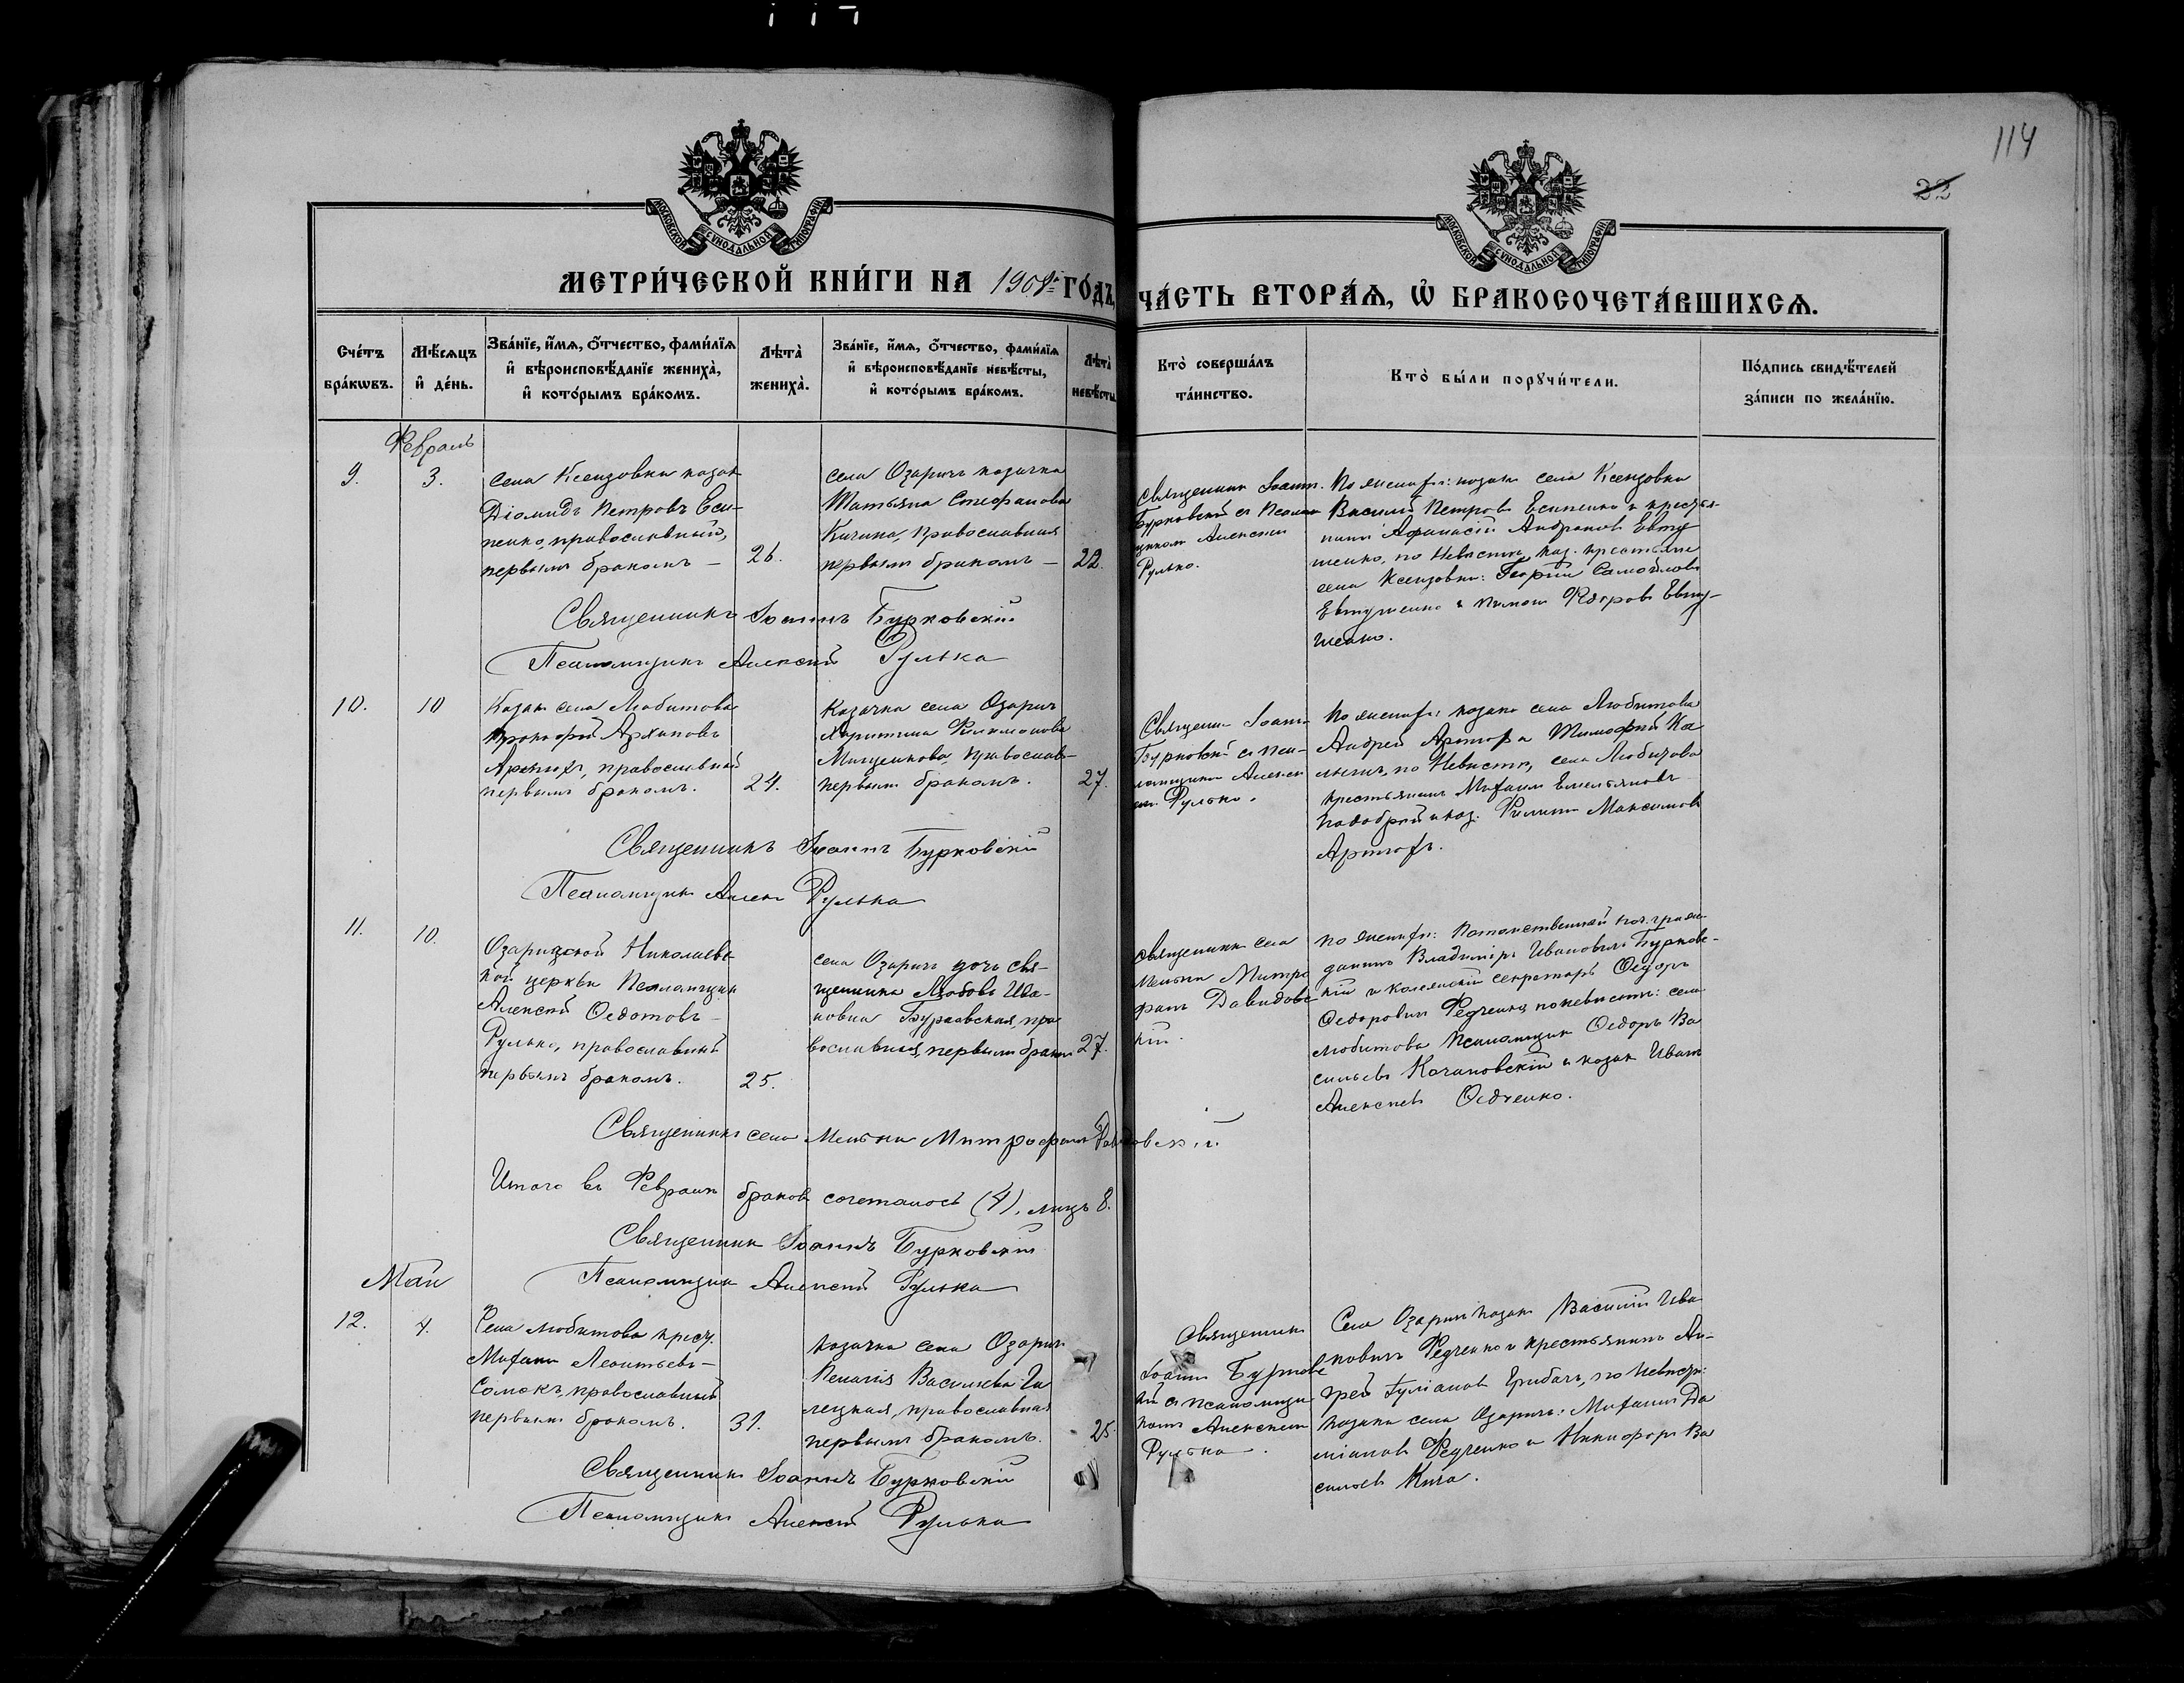 114
22
МОСКОВСКОЙ СѴНОДАЛЬНОЙ ТИПОГРАФІИ
МОСКОВСКОЙ СѴНОДАЛЬНОЙ ТИПОГРАФІИ
МЕТРИ́ЧЕСКОЙ КНИ́ГИ НА 1908й ГО́ДЪ,
ЧА́СТЬ ВТОРА́Ѧ, Ѡ҆ БРАКОСОЧЕТА́ВШИХСѦ.
Сче́тъ бра́кѡвъ.
Мѣ́сѧцъ и҆ де́нь.
Зва́нїе, и҆́мѧ, ѻ҆́тчество, фами́лїѧ и҆ вѣроисповѣ́данїе жениха̀, и҆ кото́рымъ бра́комъ.
Лѣта̀ жениха̀.
Зва́нїе, и҆́мѧ, ѻ҆́тчество, фами́лїѧ и҆ вѣроисповѣ́данїе невѣ́сты, и҆ кото́рымъ бра́комъ.
Лѣта̀ невѣ́сты
Кто̀ соверша́лъ та́инство.
Кто̀ бы́ли порꙋчи́тели.
По́дпись свидѣ́телей за́писи по жела́нїю.
Февраль
9.
3.
села Ксендзовки козак
Діомидъ Петровъ Еси-
пенко, православный,
первымъ бракомъ –
26.
села Озаричъ козачка
Татьяна Стефанова
Кичина, православная
первымъ бракомъ –
22.
Священник Іоанн.
Бурковскій с Псалом
щиком Алексеем
Рулько.
По жениху: козаки села Ксендзовки
Василій Петровъ Есипенко и крестья
нинъ Афанасій Андроновъ Евту
шенко, по невѣстѣ, каз. крестьяне
села Ксендзовки: Георгій Самойловъ
Евтушенко и Федоровъ Евту-
шенко.
Священникъ Іоаннъ Бурковскій
Псаломщикъ Алексѣй Рулько
10.
10
Козак села Любитова
Прокофій Архиповъ
православный
первымъ бракомъ.
24.
Козачка села Озаричъ
Харитина Филимонова
православ-
первымъ бракомъ.
27.
Священн Іоанн
Бурковскій с пса-
ломщиком Алексѣ
ем Рулько.
По жениху: козаки села Любитова
Андрей и Тимофей
по невѣстѣ, села Любитова
крестьянинъ Михаилъ Емельяновъ
и коз. Филиппъ Максимовъ
Священникъ Іоаннъ Бурковскій
Псаломщик Алекс Рулько
11.
10.
Озаричской Николаевс
кой церкви Псаломщик
Алексѣй Ѳедотовъ –
Рулько, православный
первымъ бракомъ.
25.
села Озаричъ дочь свя-
щенника Любовь Ива-
новна Бурковская, пра
вославная, первымъ браком
27.
Священникъ села
Мельни Митро
фанъ Давидовс
кій.
По жениху: Потомственный поч. граж-
данинъ Владиміръ Ивановичъ Бурковс-
кій и Коллежскій секретарь Ѳедоръ
Ѳедоровичъ Федченко, по невѣстѣ: села
Любитова Псаломщик Ѳедоръ Ва
сильевъ Кочановскій и козак Иванъ
Алексѣевъ Ѳедченко.
Священникъ села Мельни Митрофанъ Давидовскій.
Итого въ Февралѣ браковъ сочеталось (4), лицъ 8.
Священник Іоаннъ Бурковскій
Псаломщик Алексѣй Рулько
Май
12.
4.
Села Любитова крест.
Михаил Леонтьевъ –
Сомокъ, православный
первымъ бракомъ.
31.
Козачка села Озаричъ
Пелагія Васильева Га
лецкая, православная
первымъ бракомъ.
25
Священник
Іоаннъ Бурковс
кій с псаломщи
комъ Алексѣемъ
Рулько.
Села Озаричъ козак Василій Ива
новичъ Федченко и крестьянинъ Ан-
дрей Грибачъ, по невѣстѣ:
козаки села Озаричъ: Михаилъ Да
міановъ Федченко и Никифоръ Ва
сильевъ Кича.
Священник Іоаннъ Бурковскій
Псаломщикъ Алексѣй Рулько